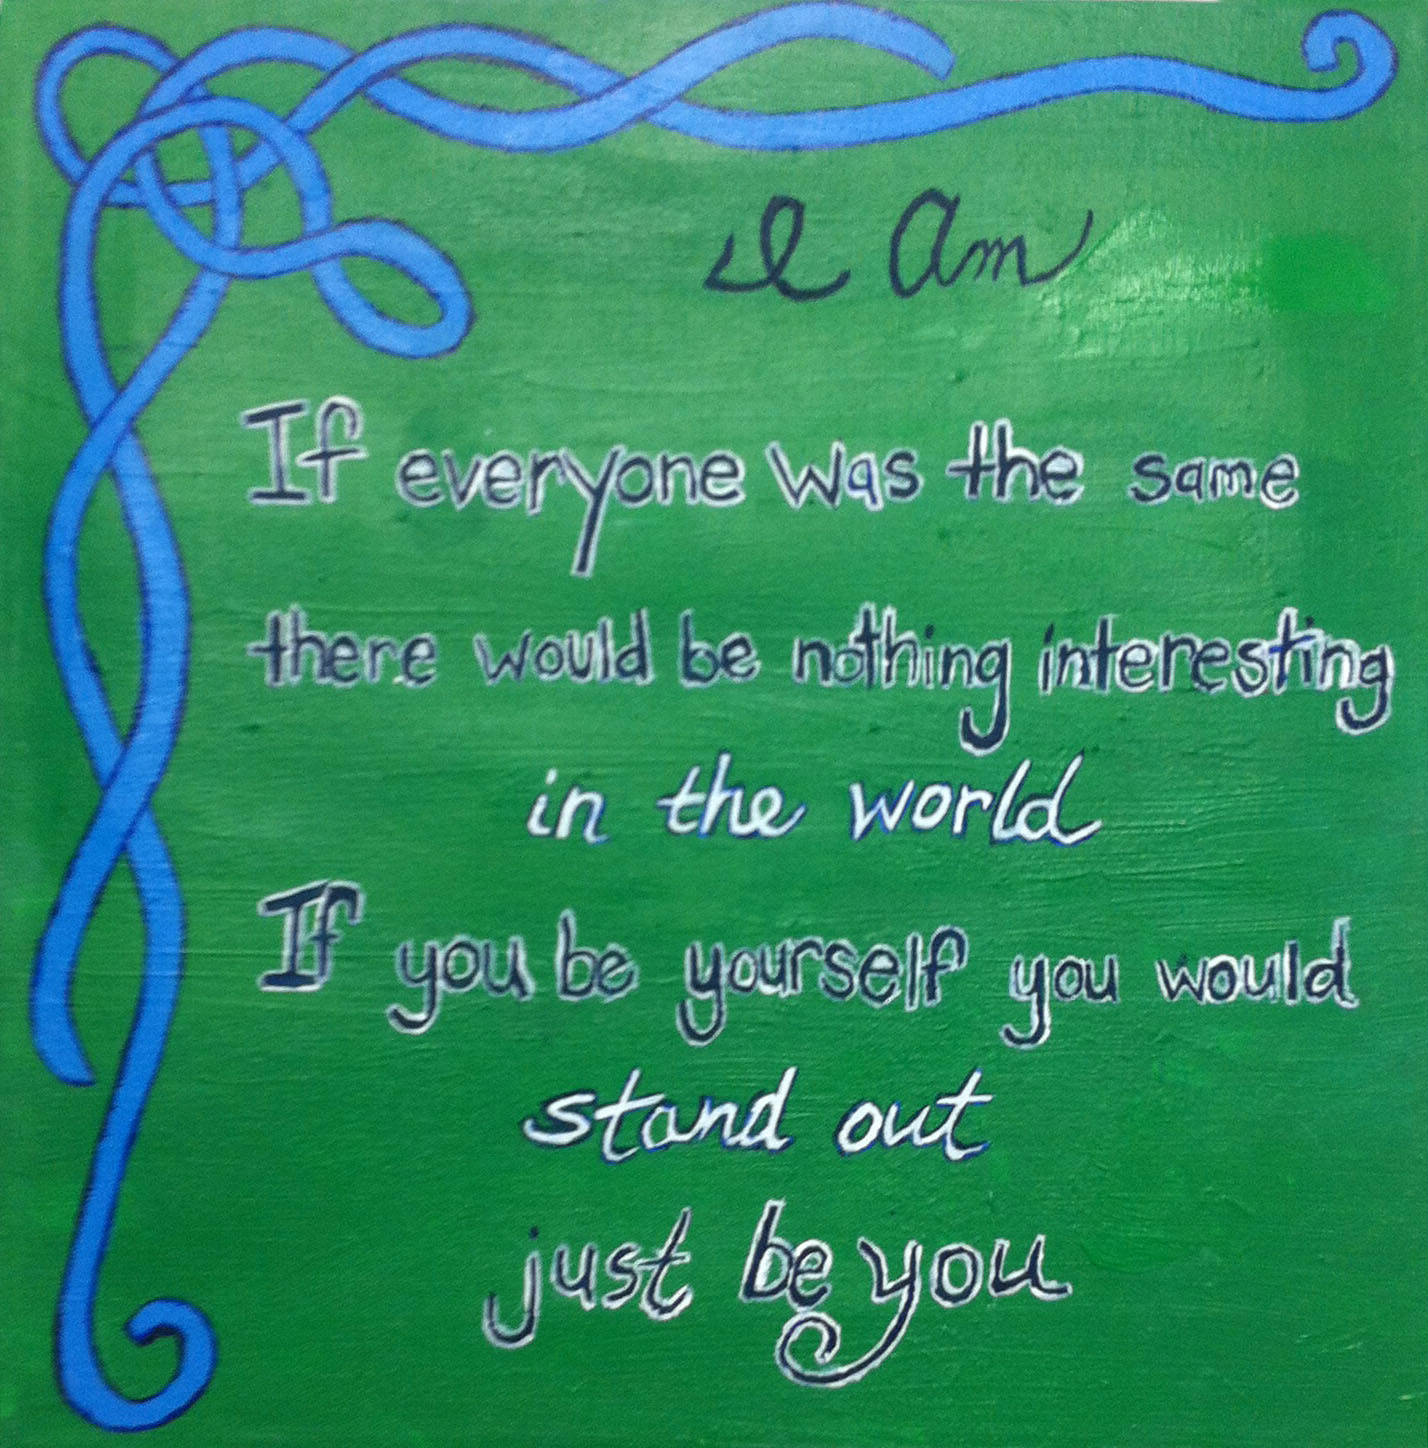 I Am
If everyone was the same
there would be nothing interesting
in the world
If you be yourself you would
stand out
just be you